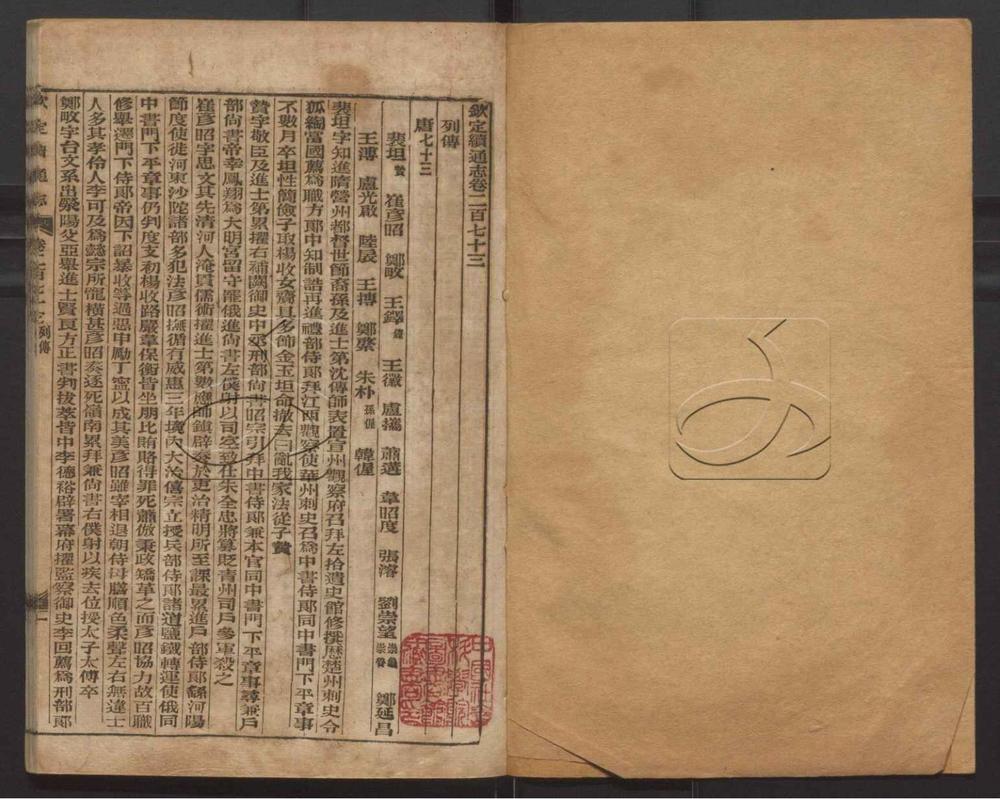 欽定續通志卷二百七十三
列傳
唐七十三
裴坦 贄 崔彥昭 鄭畋 王鐸 鐐 王徽 盧攜 蕭遘 韋昭度 張濬 劉崇望 崇龜 崇魯 鄭延昌
王溥 盧光啟 陸扆 王摶 鄭綮 朱朴 孫偓 韓偓
裴坦字知進隋營州都督世節裔孫及進士第沈傳師表置宣州觀察府召拜左拾遺史館修撰歷楚州刺史令
狐綯當國薦為職方郎中知制誥再進禮部侍郎拜江西觀察使華州刺史召為中書侍郎同中書門下平章事
不數月卒坦性簡儉子取楊收女齎具多飾金玉坦命撤去曰亂我家法從子贄
贄字敬臣及進士第累擢右補闕御史中丞刑部尚書昭宗引拜中書侍郎兼本官同中書門下平章事尋兼戶
部尚書帝幸鳳翔為大明宮留守罷俄進尚書左僕射以司空致仕朱全忠將篡貶青州司戶參軍殺之
崔彥昭字思文其先清河人淹貫儒術擢進士第數應帥鎮辟奏於吏治精明所至課最累進戶部侍郎繇河陽
節度使徙河東沙陀諸部多犯法彥昭撫循有威惠三年境內大治僖宗立授兵部侍郎諸道鹽鐵轉運使俄同
中書門下平章事仍判度支初楊收路巖韋保衡皆坐朋比賄賂得罪死蕭倣秉政矯革之而彥昭協力故百職
修舉遷門下侍郎帝因下詔暴收等過惡申勵丁寧以成其美彥昭雖宰相退朝侍母膳順色柔聲左右無違士
人多其孝伶人李可及為懿宗所寵橫甚彥昭奏逐死嶺南累拜兼尚書右僕射以疾去位授太子太傅卒
鄭畋字台文系出滎陽父亞舉進士賢良方正書判拔萃皆中李德裕辟署幕府擢監察御史李回薦為刑部郎